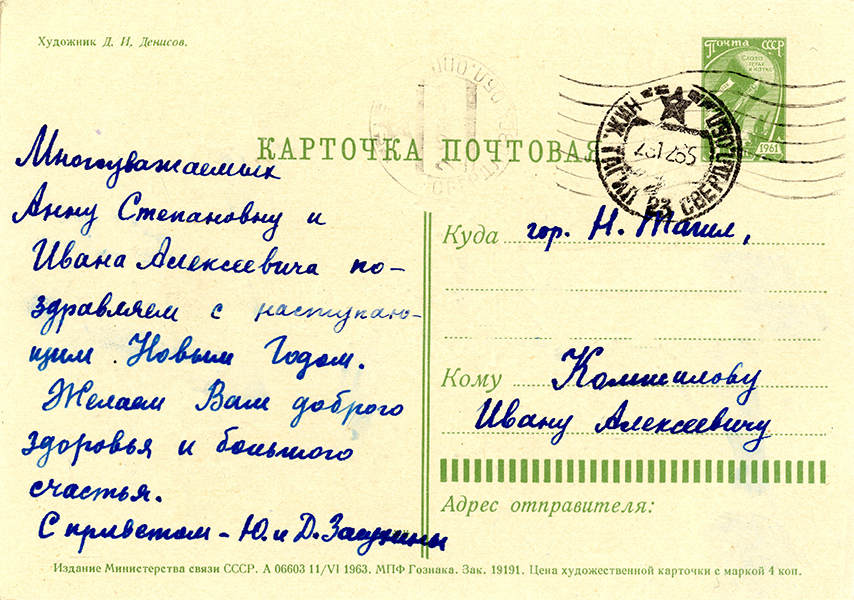 Художник Д. И. Денисов.
Почта СССР
СЛАВА
НАУКЕ
1961
КАРТОЧКА ПОЧТОВАЯ
НИЖ. ТАГИЛ 23 СВЕРДЛ. ОБЛ.
Многоуважаемых
Анну Степановну и
Ивана Алексеевича по-
здравляем с наступаю-
щим Новым Годом.
Желаем Вам доброго
здоровья и большого
счастья.
С приветом - Ю. и Д.
Куда гор. Н. Тагил,
Кому
Ивану Алексеевичу
Адрес отправителя:
Издание Министерства связи СССР. А 06603 11/VI 1963. МПФ Гознака. Зак. 19191. Цена художественной карточки с маркой 4 коп.